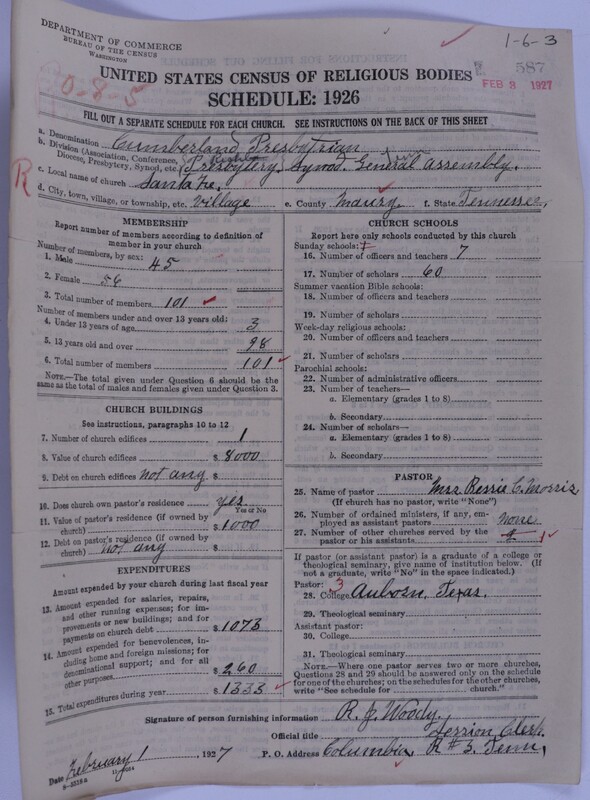 DEPARTMENT OF COMMERCE
BUREAU OF THE CENSUS
WASHINGTON
1-6-3
587
FEB 3 1927
0-8-5
UNITED STATES CENSUS OF RELIGIOUS BODIES
SCHEDULE: 1926
FILL OUT A SEPARATE SCHEDULE FOR EACH CHURCH. SEE INSTRUCTIONS ON THE BACK OF THIS SHEET
a. Denomination Cumberland Presbytrian
b. Division (Association, Conference, Diocese, Presbytery, Synod, etc.) Presbytery, Synod. General assembly.
R
c. Local name of church Santa Fe.
d. City, town, village, or township, etc. Village e. County Maury f. State Tennessee,
MEMBERSHIP
Report number of members according to definition of
member in your church
Number of members, by sex:
1. Male 45
2. Female 56
3. Total number of members 101
Number of members under and over 13 years old:
4. Under 13 years of age 3
5. 13 years old and over 98
6. Total number of members 101
NOTE.—The total given under Question 6 should be the
same as the total of males and females given under Question 3.
CHURCH BUILDINGS
See instructions, paragraphs 10 to 12
7. Number of church edifices 1
8. Value of church edifices $ 8000
9. Debt on church edifices not any $
10. Does church own pastor's residence yes
Yes or No
11. Value of pastor's residence (if owned by
church) $ 1000
12. Debt on pastor's residence (if owned by
church) not any $
EXPENDITURES
Amount expended by your church during last fiscal year
13. Amount expended for salaries, repairs,
and other running expenses; for im-
provements or new buildings; and for
payments on church debt $ 1073
14. Amount expended for benevolences, in-
cluding home and foreign missions; for
denominational support; and for all
other purposes $ 260
15. Total expenditures during year $ 1333
CHURCH SCHOOLS
Report here only schools conducted by this church
Sunday schools: 1
16. Number of officers and teachers 7
17. Number of scholars 60
Summer vacation Bible schools:
18. Number of officers and teachers
19. Number of scholars
Week-day religious schools:
20. Number of officers and teachers
21. Number of scholars
Parochial schools:
22. Number of administrative officers
23. Number of teachers—
a. Elementary (grades 1 to 8)
b. Secondary
24. Number of scholars—
a. Elementary (grades 1 to 8)
b. Secondary
PASTOR
25. Name of pastor Mrs. Bessie C. Morris
(If church has no pastor, write "None")
26. Number of ordained ministers, if any, em-
ployed as assistant pastors none
27. Number of other churches served by the
pastor or his assistants 1
If pastor (or assistant pastor) is a graduate of a college or
theological seminary, give name of institution below. (If
not a graduate, write "No" in the space indicated.)
Pastor: 3
28. College Auborn, Texas.
29. Theological seminary
Assistant pastor:
30. College
31. Theological seminary
NOTE.—Where one pastor serves two or more churches,
Questions 28 and 29 should be answered only on the schedule
for one of the churches; on the schedules for the other churches,
write "See schedule for church."
Signature of person furnishing information R. J. Woody.
Official title Session Clerk.
Date February 1 1927 P. O. Address Columbia, R# 3. Tenn,